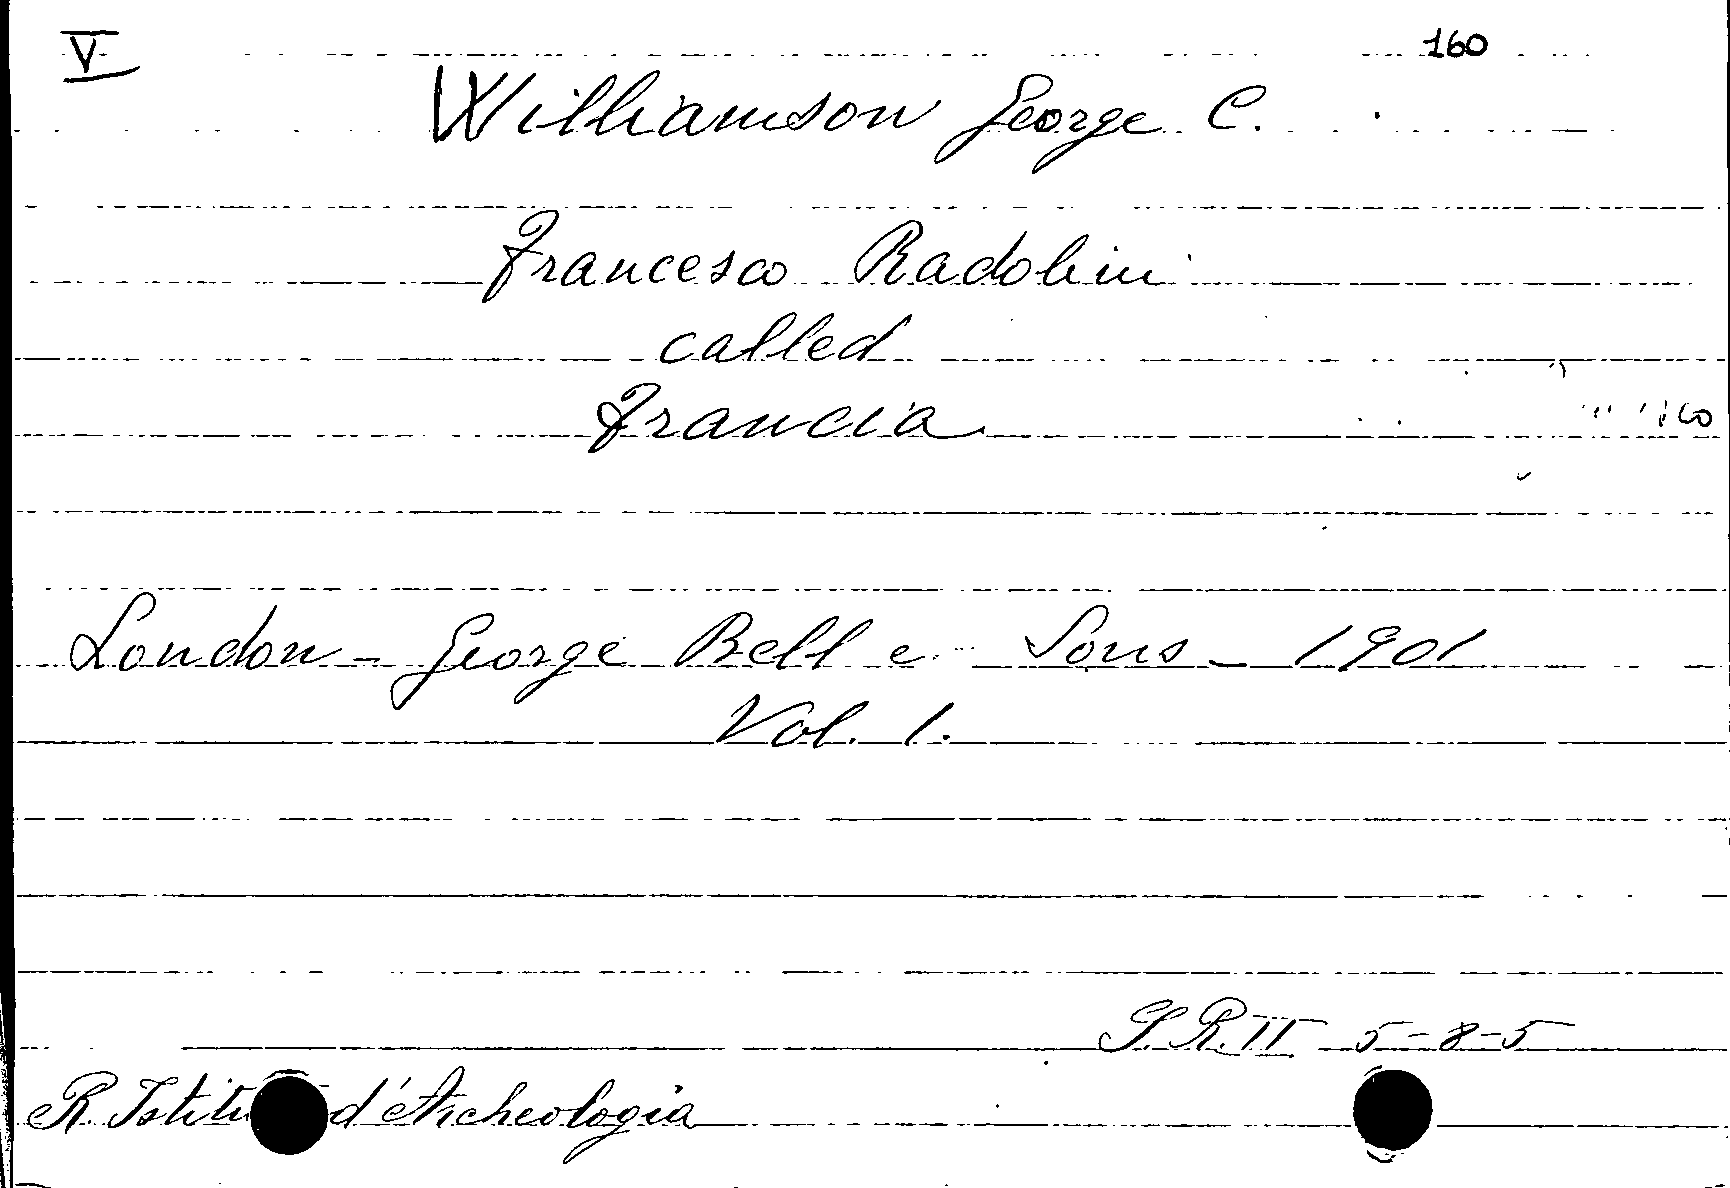 V 160
Williamson George C.
Francesco Radolini
called
Francia
London - George Bell e Sons - 1901
Vol. 1.
S. R. II 5-8-5
R. d'Archeologia